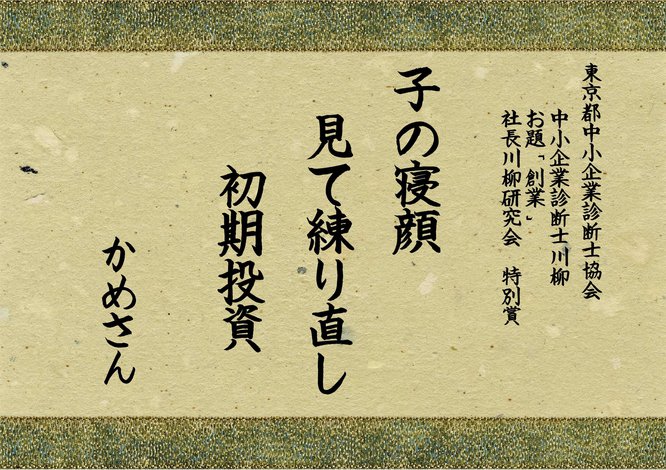 東京都中小企業診断士協会
中小企業診断士川柳
お題「創業」
社長川柳研究会　特別賞
子の寝顔
見て練り直し
初期投資
かめさん